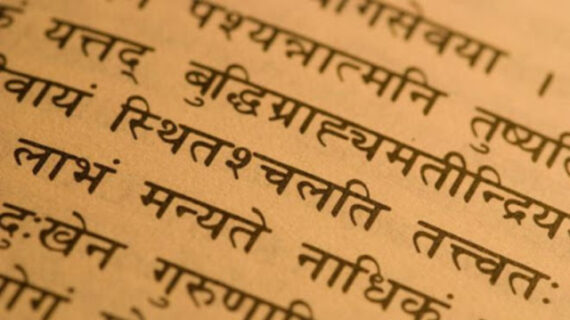 योगसेवया ।
पश्यन्नात्मनि तुष्यति
यत्तद् बुद्धिग्राह्यमतीन्द्रिय
वायं स्थितश्चलति तत्त्वतः
लाभं मन्यते नाधिकं
दुःखेन गुरुणा